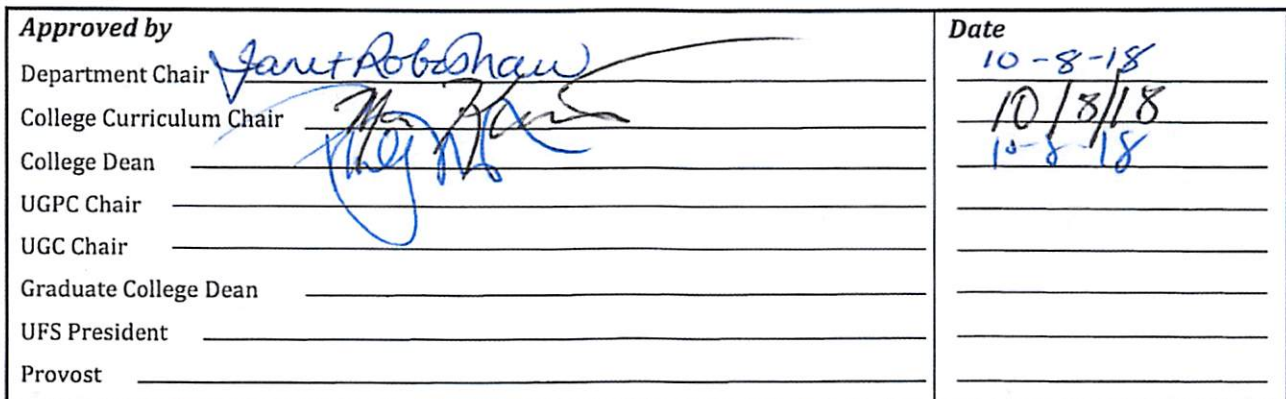 Approved by Date
Department Chair Janet Robishaw 10-8-18
College Curriculum Chair 10/8/18
College Dean 10-8-18
UGPC Chair
UGC Chair
Graduate College Dean
UFS President
Provost